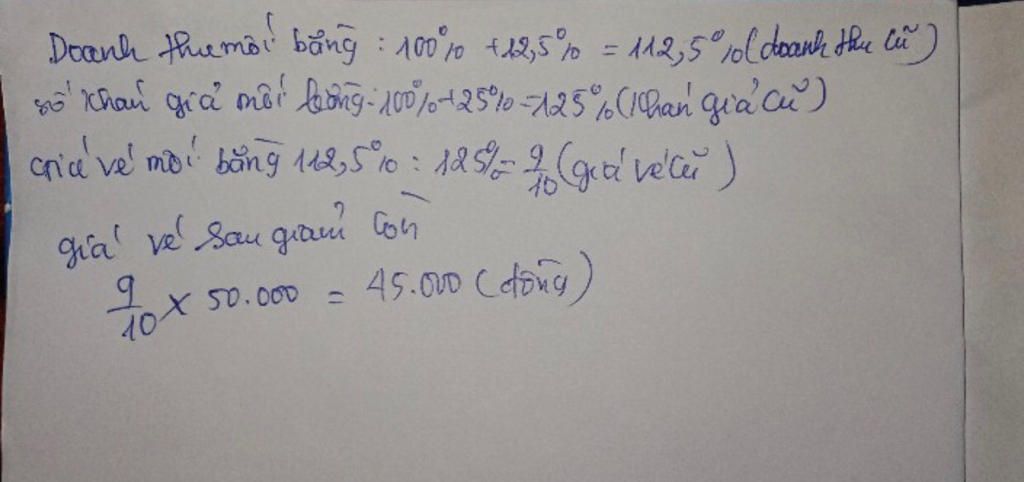 Doanh thu mới bằng : 100% + 12,5% = 112,5% (doanh thu cũ)
số khán giả mới bằng: 100% + 25% = 125% (khán giả cũ)
giá vé mới bằng 112,5% : 125% = 9/10 (giá vé cũ)
giá vé sau giảm còn
9/10 × 50.000 = 45.000 (đồng)